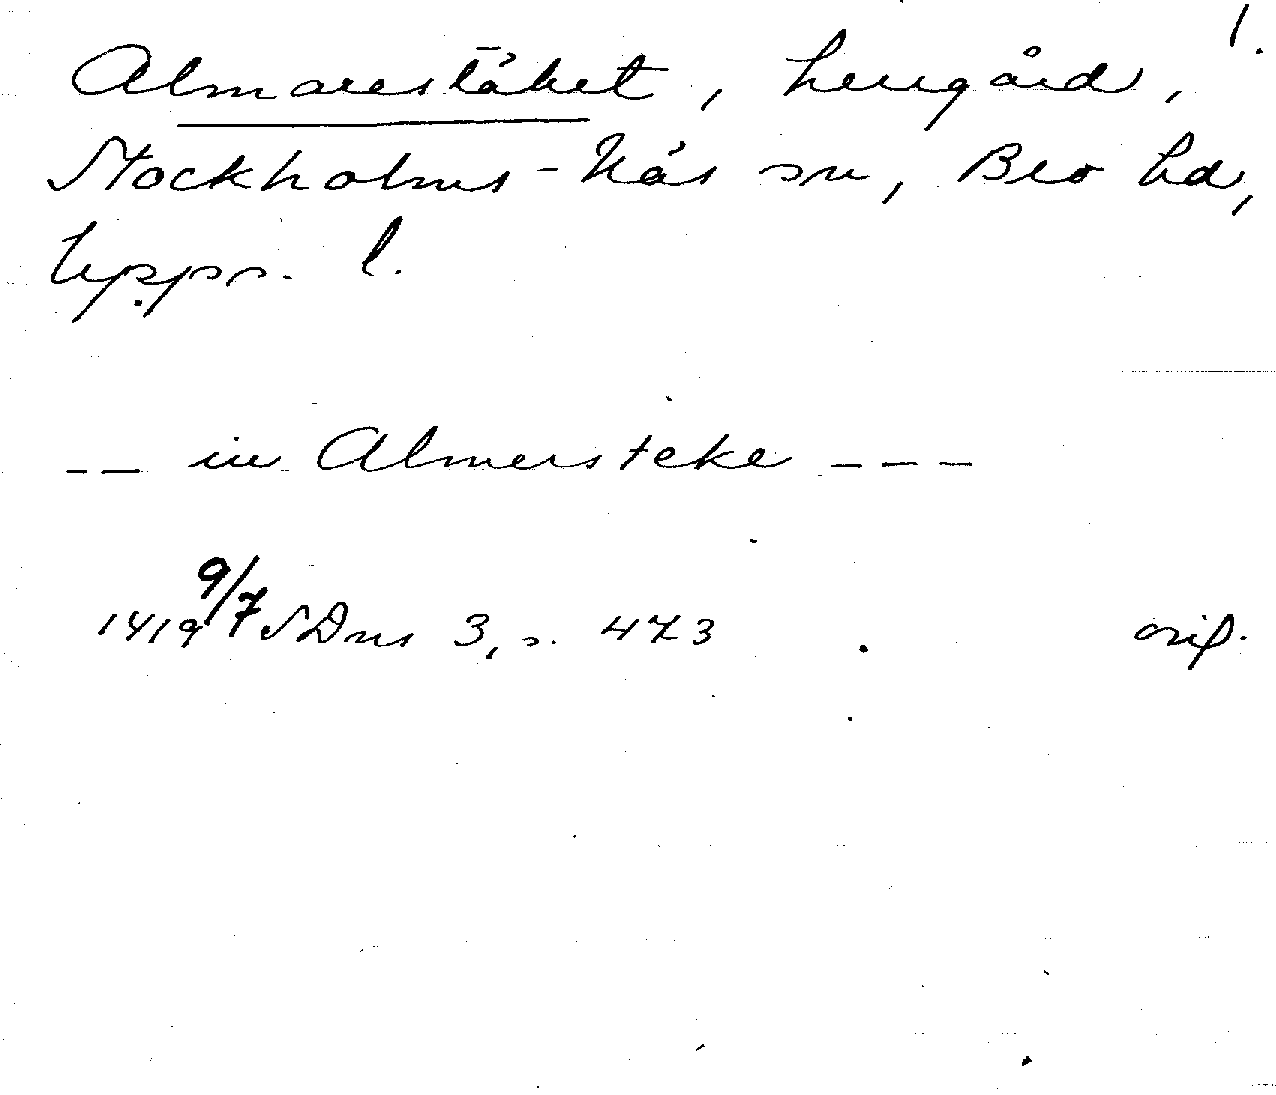 1.
Almarestäket, herrgård,
Stockholms-Näs sn, Bro hd,
Upps. l.
-- in Almersteke ---
1419 9/7 SDns 3, s. 473 . orig.